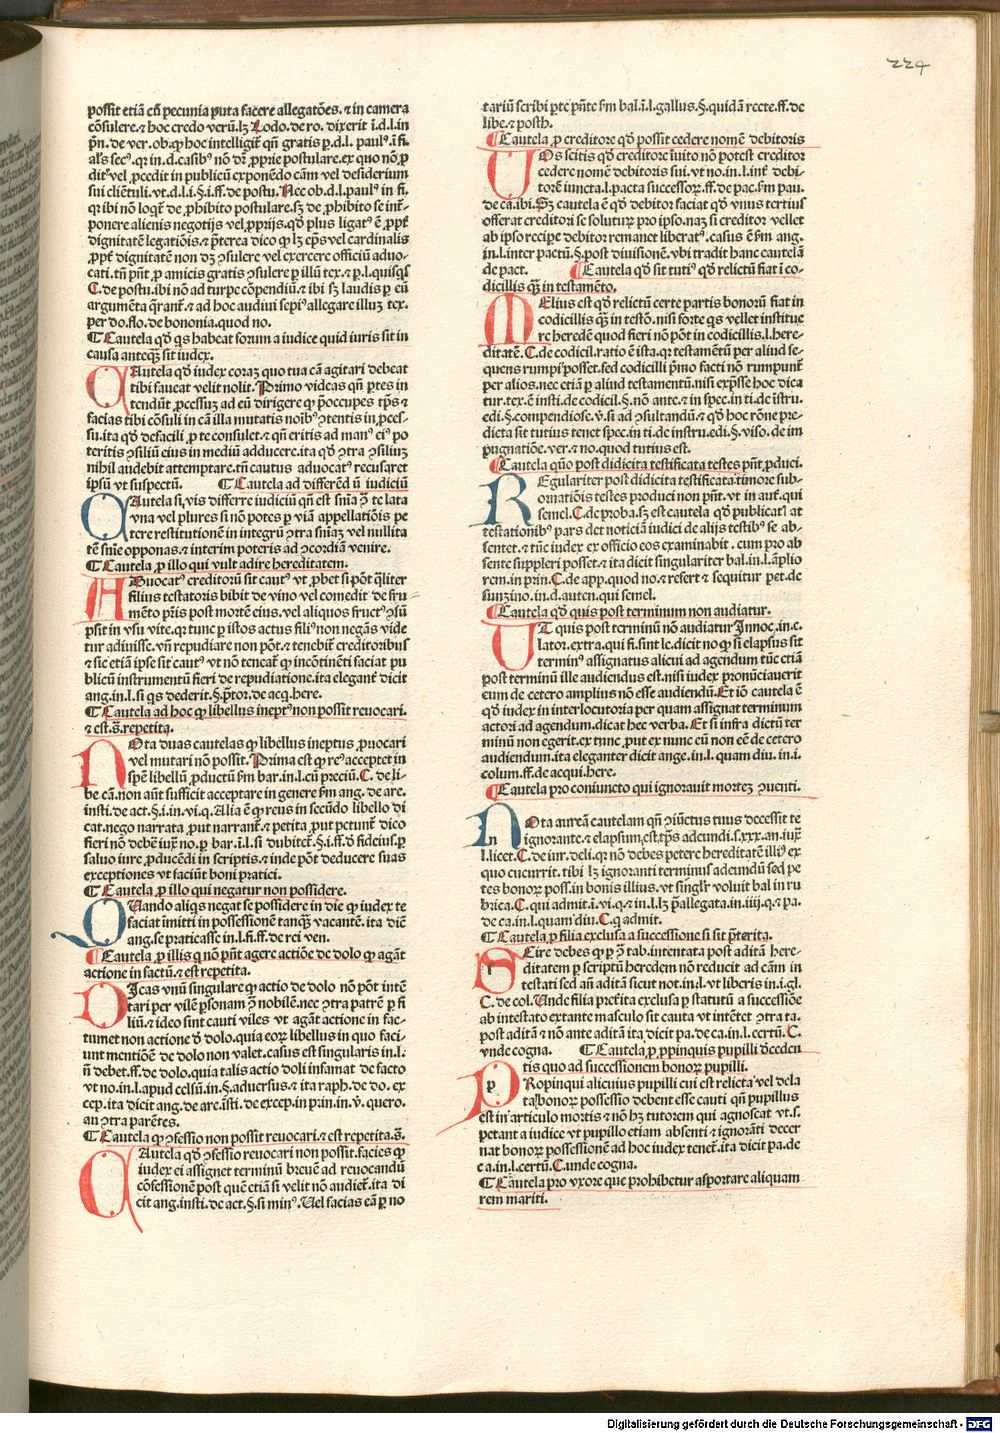 224
possit etiã cũ pecunia puta facere allegatões. ⁊ in camera
cõsulere. ⁊ hoc credo verũ. lꝫ Lodo. de ro. dixerit ĩ. d. l. in
pñ. de ver. ob. ꝙ hoc intelligit̃ qñ gratis ꝑ. d. l. paulꝰ. ĩ fi.
dit̃ vel ꝓcedit in publicũ exponẽdo cãm vel desiderium
sui cliẽtuli. vt. d. l. i. §. i. ff. de postu. Nec ob. d. l. paulꝰ in fi.
qꝛ ibi nõ loqt̃ de ꝓhibito postulare. sꝫ de ꝓhibito se int̃-
ponere alienis negotijs vel ꝓprijs. qð plus ligatꝰ ẽ ꝓpt̃
dignitatẽ legatiõis. ⁊ p̃terea dico ꝙ lꝫ ep̃s vel cardinalis
ꝓpt̃ dignitatẽ non dꝫ ꝯsulere vel exercere officiũ aduo-
cati. tñ pñt ꝓ amicis gratis ꝯsulere ꝑ illũ tex. ⁊ ꝑ. l. quisqꝫ
C. de postu. ibi nõ ad turpe cõpendiũ. ⁊ ibi sꝫ laudis ꝑ eũ
argumẽta q̃rant̃. ⁊ ad hoc audiui sepiꝰ allegare illuꝫ tex.
per do. flo. de bononia. quod no.
¶ Cautela qð qs habeat forum a iudice quid iuris sit in
causa anteqꝫ sit iudex.
CAutela qð iudex coraꝫ quo tua cã agitari debeat
tibi faueat velit nolit. Primo videas qñ ptes in
tendũt ꝓcessuꝫ ad eũ dirigere ꝙ p̃occupes tp̃s ⁊
facias tibi cõsuli in cã illa mutatis noĩbꝰ ꝯtentis in ꝓces-
su. ita qð defacili ꝓ te consulet. ⁊ qñ eritis ad manꝰ eiꝰ po
teritis ꝯsiliũ eius in mediũ adducere. ita qð ꝯtra ꝯsiliuꝫ
nihil audebit attemptare. tñ cautus aduocatꝰ recusaret
ipsũ vt suspectũ. ¶ Cautela ad differẽd ũ iudiciũ
CAutela si vis differre iudiciũ qñ est sñia ꝯ̃ te lata
vna vel plures si nõ potes ꝑ viã appellatiõis pe
tere restitutionẽ in integrũ ꝯtra sñiaꝫ vel nullita
tẽ sñie opponas. ⁊ interim poteris ad ꝯcordiã venire.
¶ Cautela ꝓ illo qui vult adire hereditatem.
ADuocatꝰ creditorũ sit cautꝰ vt ꝓbet si põt qĺiter
filius testatoris bibit de vino vel comedit de fru
mẽto p̃ris post mortẽ eius. vel aliquos fructꝰ ꝯsũ
psit in vsu vite. qꝛ tunc ꝑ istos actus filiꝰ non negãs vide
tur adiuisse. vñ repudiare non põt. ⁊ tenebit̃ creditoribus
⁊ sic etiã ipse sit cautꝰ vt nõ teneat̃ ꝙ incõtinẽti faciat pu
blicũ instrumentũ fieri de repudiatione. ita elegant̃ dicit
ang. in. l. si qs dederit. §. p̃tor. de acq. here.
¶ Cautela ad hoc ꝙ libellus ineptꝰ non possit reuocari.
⁊ est. s̃. repetita.
NOta duas cautelas ꝙ libellus ineptus ꝓuocari
vel mutari nõ possit. Prima est ꝙ reꝰ acceptet in
spẽ libellũ ꝓductũ fm bar. in. l. cũ preciũ. C. de li-
be cã. non aũt sufficit acceptare in genere fm ang. de are.
insti. de act. §. i. in. vi. q. Alia ẽ ꝙ reus in secũdo libello di
cat. nego narrata ꝓut narrant̃. ⁊ petita ꝓut petunt̃ dico
fieri nõ debẽ iuꝝ no. ꝑ bar. ĩ. l. si dubitet̃. §. i. ff. ð fideius. ꝑ
saluo iure ꝓducẽdi in scriptis. ⁊ inde põt deducere suas
exceptiones vt faciũt boni pratici.
¶ Cautela ꝓ illo qui negatur non possidere.
QUando aliqs negat se possidere in die ꝙ iudex te
faciat ĩmitti in possessionẽ tanqꝫ vacantẽ. ita diẽ
ang. se praticasse in. l. fi. ff. de rei ven.
¶ Cautela ꝓ illis q nõ pñt agere actiõe de dolo ꝙ agãt
actione in factũ. ⁊ est repetita.
DIcas vnũ singulare ꝙ actio de dolo nõ põt intẽ
tari per vilẽ ꝑsonam ꝯ̃ nobilẽ. nec ꝯtra patrẽ ꝑ fi
liũ. ⁊ ideo sint cauti viles vt agãt actione in fac-
tumet non actione ð dolo. quia eoꝝ libellus in quo faci-
unt mentiõẽ de dolo non valet. casus est singularis in. l.
ñ debet. ff. de dolo. quia talis actio doli infamat de facto
vt no. in. l. apud celsũ. in. §. aduersus. ⁊ ita raph. de do. ex
cep. ita dicit ang. de are. ĩsti. de excep. in prin. in. v̊. quero.
an ꝯtra parẽtes.
¶ Cautela ꝙ ꝯfessio non possit reuocari. ⁊ est repetita. s̃.
CAutela qð ꝯfessio reuocari non possit. facies ꝙ
iudex ei assignet terminũ breuẽ ad reuocandũ
cõfessionẽ post quẽ etiã si velit nõ audiet̃. ita di
cit ang. insti. de act. §. si minꝰ. Uel facias eã ꝑ no
tariũ scribi pte pñte fm bal. ĩ. l. gallus. §. quidã recte. ff. de
libe. ⁊ posth.
¶ Cautela ꝓ creditore qð possit cedere nomẽ debitoris
UOs scitis qð creditore ĩuito nõ potest creditor
cedere nomẽ debitoris sui. vt no. in. l. int̃ debi-
torẽ iuncta. l. pacta successoꝝ. ff. de pac. fm pau.
de ca. ibi. Sꝫ cautela ẽ qð debitor faciat qð vnus tertius
offerat creditori se soluturꝫ pro ipso. naꝫ si creditor vellet
ab ipso recipe debitor remanet liberatꝰ. casus ẽ fm ang.
in. l. inter pactũ. §. post diuisionẽ. vbi tradit hanc cautelã
de pact. ¶ Cautela qð sit tutiꝰ qð relictũ fiat ĩ co-
dicillis qꝫ in testamẽto.
MElius est qð relictũ certe partis bonorũ fiat in
codicillis qꝫ in testõ. nisi forte qs vellet institue
re heredẽ quod fieri nõ põt in codicillis. l. here-
ditatẽ. C. de codicil. ratio ẽ ista. qꝛ testamẽtũ per aliud se-
quens rumpi posset. sed codicilli p̃mo facti nõ rumpunt̃
per alios. nec etiã ꝑ aliud testamentũ. nisi exp̃sse hoc dica
tur. tex. ẽ insti. de codicil. §. nõ ante. ⁊ in spec. in ti. de ĩstru.
edi. §. compendiose. v̊. si ad ꝯsultandũ. ⁊ qð hoc rõne pre-
dicta sit tutius tenet spec. in ti. de instru. edi. §. viso. de im
pugnatiõe. ver. ⁊ no. quod tutius est.
¶ Cautela qũo post didicita testificata testes pñt ꝓduci.
REgulariter post didicita testificata. timore sub-
ornatiõis testes produci non pñt. vt in aut̃. qui
semel. C. de proba. sꝫ est cautela qð publicatꝭ at
testationibꝰ pars det noticiã iudici de alijs testibꝰ se ab-
sentet. ⁊ tũc iudex ex officio eos examinabit. cum pro ab
sente suppleri posset. ⁊ ita dicit singulariter bal. in. l. ãplio
rem. in prin. C. de app. quod no. ⁊ refert ⁊ sequitur pet. de
sunzino. in. d. auten. qui semel.
¶ Cautela qð quis post terminum non audiatur.
UT quis post terminũ nõ audiatur Innoc. in. c.
lator. extra. qui fi. sint le. dicit no ꝙ si elapsus sit
terminꝰ assignatus alicui ad agendum tũc etiã
post terminũ ille audiendus est. nisi iudex pronũciauerit
eum de cetero amplius nõ esse audiendũ. Et iõ cautela ẽ
qð iudex in interlocutoria per quam assignat terminum
actori ad agendum. dicat hec verba. Et si infra dictũ ter
minũ non egerit. ex tunc ꝓut ex nunc eũ non eẽ de cetero
audiendum. ita eleganter dicit ange. in. l. quam diu. in. i.
colum. ff. de acqui. here.
¶ Cautela pro coniuncto qui ignorauit morteꝫ ꝯuenti.
NOta aureã cautelam qñ ꝯiũctus tuus decessit te
ignorante. ⁊ elapsum est tp̃s adeundi. s. xxx. an. iuꝝ
l. licet. C. de iur. deli. qꝛ nõ debes petere hereditatẽ illiꝰ ex
quo cucurrit. tibi lꝫ ignoranti terminus adeundi sed pe
tes bonoꝝ poss. in bonis illius. vt singĺr voluit bal in ru
brica. C. qui admit. ĩ. vi. q. ⁊ in. l. lꝫ p̃allegata. in. iiij. q. ⁊ pa.
de ca. in. l. quam diu. C. q admit.
¶ Cautela ꝓ filia exclusa a successione si sit p̃terita.
SCire debes ꝙ ꝑ ꝯ̃ tab. intentata post aditã here-
ditatem ꝑ scriptũ heredem nõ reducit ad cãm in
testati sed añ aditã sicut not. in. l. vt liberis in. i. gl.
C. de col. Unde filia pretita exclusa ꝑ statutũ a successiõe
ab intestato extante masculo sit cauta vt intẽtet ꝯtra ta.
post aditã ⁊ nõ ante aditã ita dicit pa. de ca. in. l. certũ. C.
vnde cogna. ¶ Cautela ꝓ ꝓpinquis pupilli ð̃cedẽ
tis quo ad successionem bonoꝝ pupilli.
PRopinqui alicuius pupilli cui est relicta vel dela
ta bonoꝝ possessio debent esse cauti qñ pupillus
est in articulo mortis ⁊ nõ hꝫ tutorem qui agnoscat vt. s.
petant a iudice vt pupillo etiam absenti ⁊ ignorãti decer
nat bonoꝝ possessionẽ ad hoc iudex tenet̃. ita dicit pa. de
ca. in. l. certũ. C. unde cogna.
¶ Cautela pro vxore que prohibetur asportare aliquam
rem mariti.
Digitalisierung gefördert durch die Deutsche Forschungsgemeinschaft - DFG